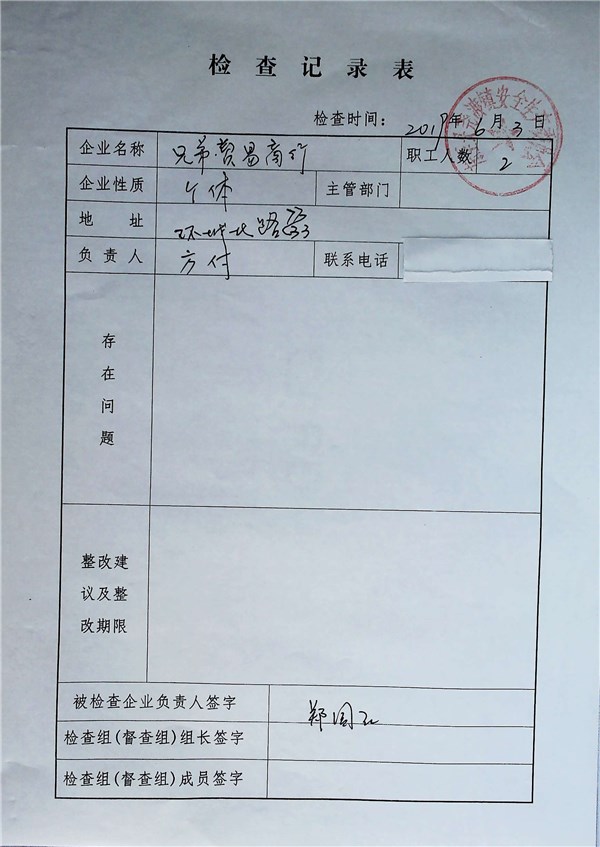 检查记录表
检查时间：2017年6月3日
企业名称 兄弟贸易商行 职工人数 2
企业性质 个体 主管部门
地址 环城北路
负责人 方付 联系电话
存在问题
整改建议及整改期限
被检查企业负责人签字
检查组(督查组)组长签字
检查组(督查组)成员签字